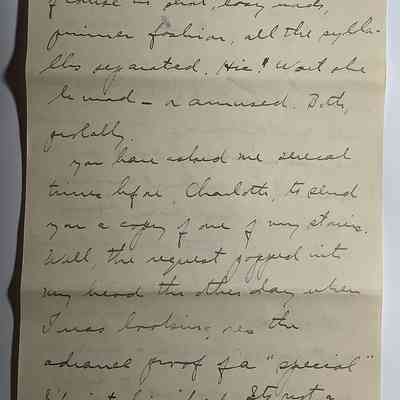 in short, easy words,
primer fashion, all the sylla-
bles separated. Hic! Won't she
be mad — or amused. Both,
probably.
You have asked me several
times before, Charlotte, to send
you a copy of one of my stories.
Well, the request popped into
my head the other day when
I was looking over the
advance proof of a "special"
It's not a